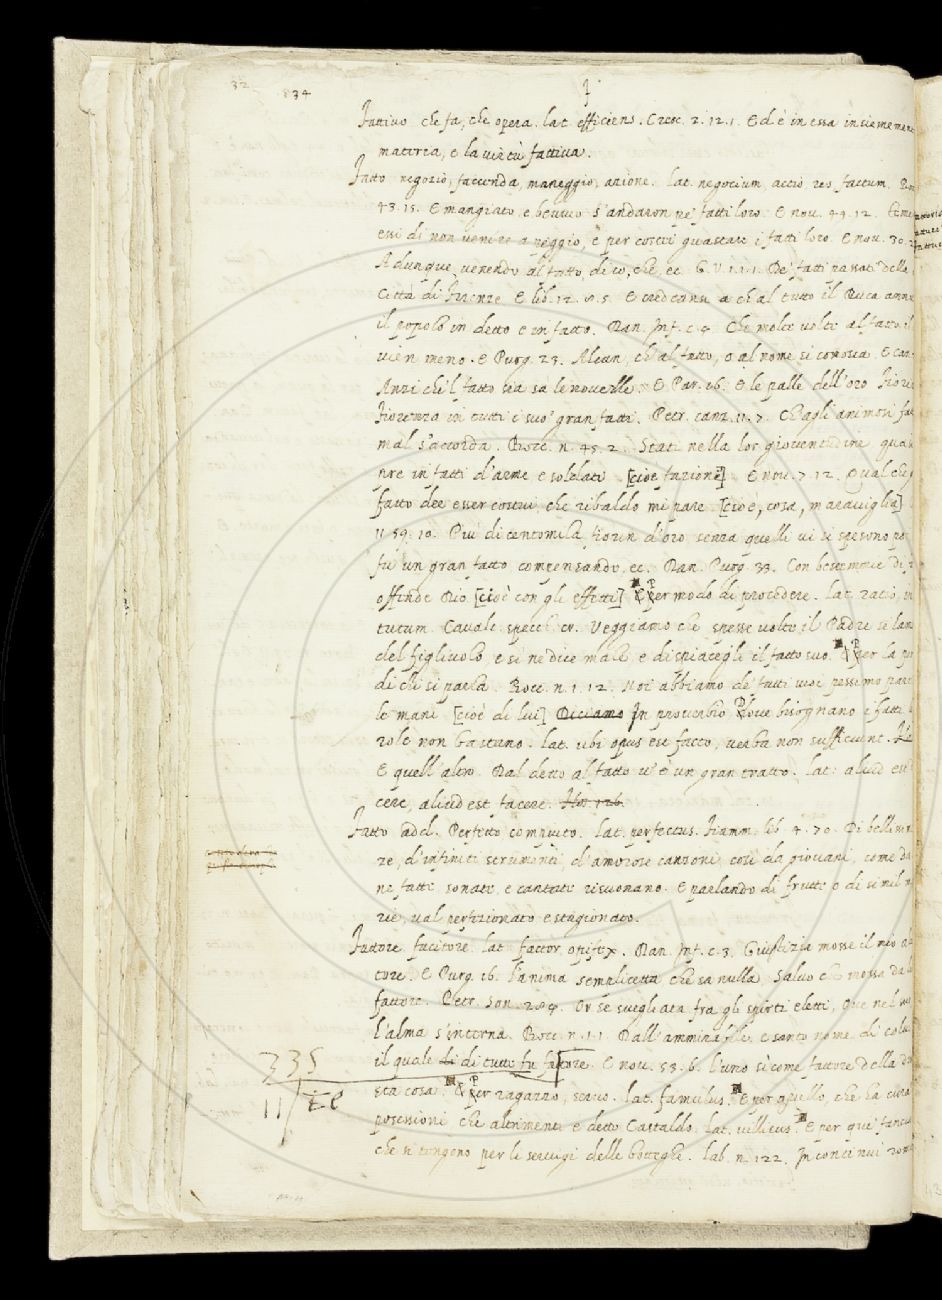 32 834
F
Fattivo che fa, che opera. lat. efficiens. Cresc. 2. 12. 1. Ed è in essa insiememen
materia, e la virtù fattiva.
Fatto negozio, faccenda, maneggio, azione. Lat. negocium, actio, res factum. Bo
43. 15. E mangiato, e bevuto s'andaron pe' fatti loro. E nov. 49. 12. teme
essi di non venire a peggio, e per costui guastare i fatti loro. E nov. 30. 2
Adunque, venendo al fatto, dico, che, ec. G. V. 1. 1. 1. De' fatti passati della
Città di Firenze. E lib. 12. 8. 5. E credeansi a ch'al tutto il Duca amas
il popolo in detto e in fatto. Dan. Inf. c. 4. Che molte volte al fatto il
vien meno. E Purg. 23. Alcun, ch'al fatto, o al nome si conosca. E can.
Anzi che'l fatto sia sa le novelle. E Par. 16. E le palle dell'oro Fiori
Fiorenza in tutti i suo' gran fatti. Petr. canz. 11. 7. Ch'agli animosi fat
mal s'accorda. Bocc. n. 45. 2. Stati nella lor gioventudine quasi
pre in fatti d'arme e soldati [cioè fazioni] E nov. 7. 12. Qual che
fatto dee esser costui, che ribaldo mi pare [cioè, cosa, maraviglia]
11. 59. 10. Più di centomila fiorin d'oro, senza quelli vi si spesono po
fu un gran fatto compensando, ec. Dan. Purg. 33. Con bestemmia di f
offende Dio [cioè con gli effetti] Per modo di procedere. Lat. ratio, in
tutum. Cavalc. specch. cr. Veggiamo che spesse volte il Padre se lam
del figlivolo, e si ne dice male, e dispiacegli il fatto suo. Per la per
di chi si parla. Bocc. n. 1. 12. Noi abbiamo de' fatti suoi pessimo part
le mani [cioè di lui] Diciamo In proverbio Dove bisognano i fatti
role non bastano. Lat. ubi opus est facto, verba non sufficiunt.
E quell'altro Dal detto al fatto v'è un gran tratto. Lat. aliud est
cere, aliud est facere. Flos. 126.
Fatto add. Perfetto compiuto. Lat. perfectus. Fiamm. lib. 4. 70. Di bellissim
re, d'infiniti strumenti, d'amorose canzoni, così da giovani, come da
ne fatte, sonate, e cantate risuonano. E parlando di frutte o di simil m
rie, val perfezionato e stagionato.
Fattore facitore. Lat. factor, opifex. Dan. Inf. c. 3. Giustizia mosse il mio al
tore. E Purg. 16. l'anima semplicetta che sa nulla, Salvo che mossa da l
fattore. Petr. Son. 284. Or se' svegliata fra gli spirti eletti, Ove nel su
l'alma s'interna. Bocc. n. 1. 1. Dall'ammirabile, e santo nome di colu
il quale di tutto fu fattore. E nov. 53. 6. l'uno sì come fattore della d
335
sta cosa. Per ragazzo, servo. Lat. famulus. E per quello, che ha cura
11
possessioni, che altrimenti è detto Castaldo. Lat. villicus. E per que' fanciu
che si tengono per li servigi delle botteghe. Lab. n. 122. In continui rom